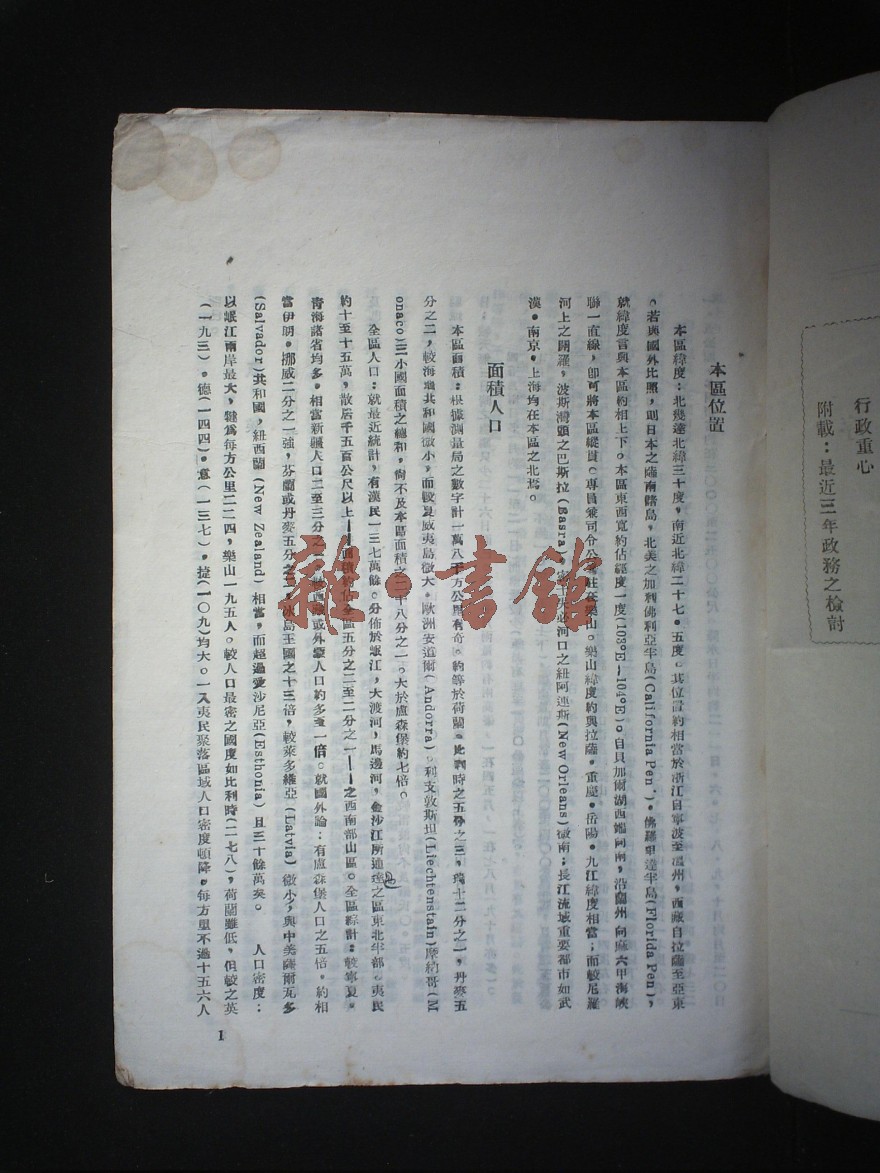 行政重心
附載：最近三年政務之檢討
本區位置
本區緯度：北幾達北緯三十度，南近北緯二十七・五度。其位置約相當於浙江自寧波至溫州，西藏自拉薩至亞東
。若與國外比照，則日本之薩南諸島，北美之加利佛利亞半島(California Pen.)、佛羅里達半島(Florida Pen)，
就緯度言與本區約相上下。本區東西寬約佔經度一度(103°E—104°E)。自貝加爾湖西端向南，沿蘭州 向麻六甲海峽
聯一直線，卽可將本區縱貫。專員兼司令公署駐在樂山。樂山緯度約與拉薩、重慶、岳陽、九江緯度相當；而較尼羅
河上之開羅，波斯灣頭之巴斯拉(Basra)，密士失必河口之紐阿連斯(New Orleans)微南；長江流域重要都市如武
漢、南京、上海均在本區之北焉。
面積人口
本區面積：根據測量局之數字計一萬八千方公里有奇。約等於荷蘭、比利時之五份之三，瑞士二分之一，丹麥五
分之二，較海地共和國微小，而較夏威夷島微大。歐洲安道爾(Andorra)、利支敦斯坦(Liechtenstain)摩納哥(M
onaco)三小國面積之總和，尙不及本區面積之二十八分之一。大於盧森堡約七倍。
全區人口：就最近統計，有漢民一三七萬餘。分佈於岷江，大渡河，馬邊河，金沙江所通達之區東北半部。夷民
約十至十五萬，散居千五百公尺以上——面積約佔全區五分之二至二分之一——之西南部山區。全區綜計：較寧夏、
青海諸省均多。相當新疆人口二至三分之一，較西藏或外蒙人口約多至一倍。就國外論：有盧森堡人口之五倍。約相
當伊朗、挪威二分之一強，芬蘭或丹麥五分之二，冰島王國之十三倍，較萊多維亞(Latvia)微少，與中美薩爾瓦多
(Salvador)共和國，紐西蘭(New Zealand)相當，而超過愛沙尼亞(Esthonia)且三十餘萬矣。 人口密度：
以岷江兩岸最大，犍爲每方公里二二四，樂山一九五人。較人口最密之國度如比利時(二七八)，荷蘭雖低，但較之英
(一九三)、德(一四四)、意(一三七)，捷(一〇九)均大。一入夷民聚落區域人口密度頓降，每方里不過十五六人
1
雜・書館